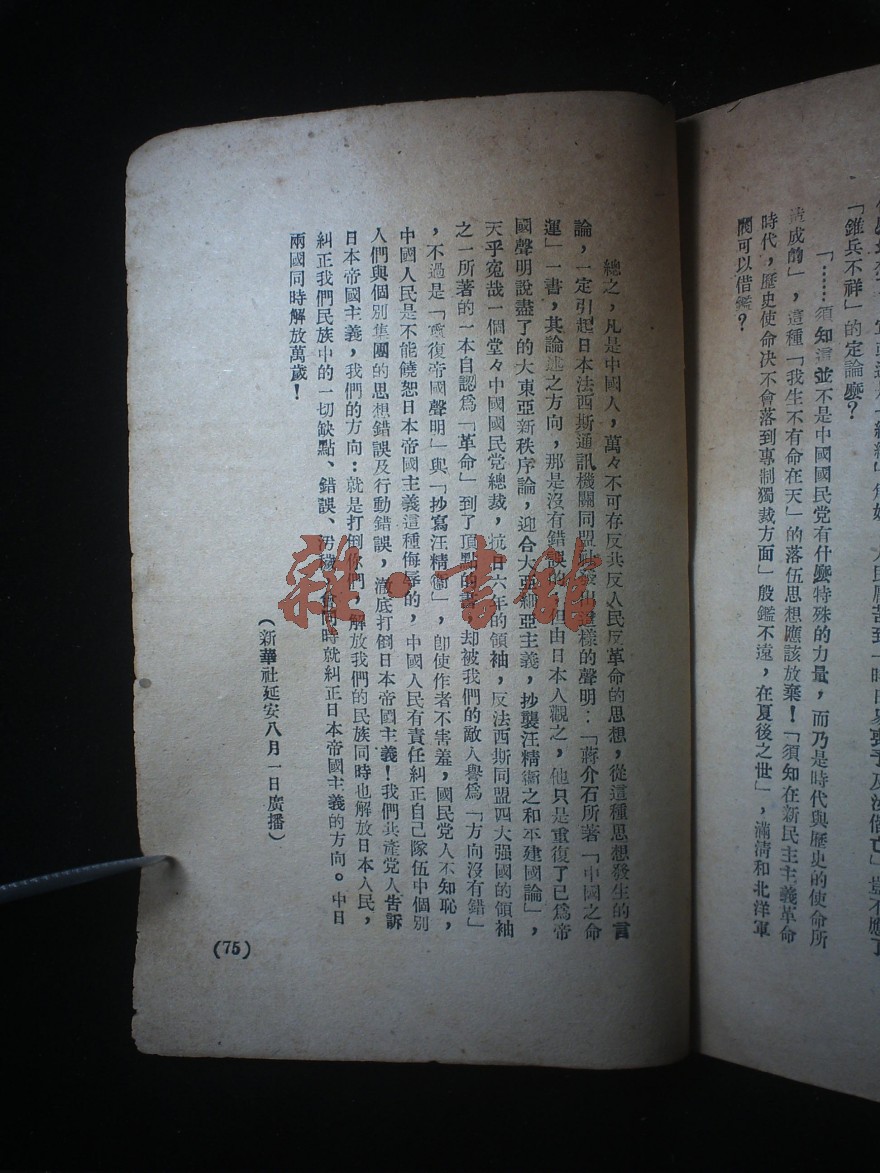 「錐兵不祥」的定論麼?
「……須知這並不是中國國民党有什麼特殊的力量,而乃是時代與歷史的使命所
造成的」,這種「我生不有命在天」的落伍思想應該放棄!「須知在新民主主義革命
時代,歷史使命决不會落到專制獨裁方面」殷鑑不遠,在夏後之世」,滿清和北洋軍
閥可以借鑑?
總之,凡是中國人,萬々不可存反共反人民反革命的思想,從這種思想發生的言
論,一定引起日本法西斯通訊機關同盟社發出這樣的聲明:「蔣介石所著「中國之命
運」一書,其論述之方向,那是沒有錯誤的,但由日本人觀之,他只是重復了已為帝
國聲明說盡了的大東亞新秩序論,迎合大亞細亞主義,抄襲汪精衞之和平建國論」,
天乎寃哉一個堂々中國國民党總裁,抗日六年的領袖,反法西斯同盟四大强國的領袖
之一所著的一本自認為「革命」到了頂點的書,却被我們的敵人譽為「方向沒有錯」
,不過是「重復帝國聲明」與「抄寫汪精衞」,卽使作者不害羞,國民党人不知恥,
中國人民是不能饒恕日本帝國主義這種侮辱的,中國人民有責任糾正自己隊伍中個別
人們與個別集團的思想錯誤及行動錯誤,澈底打倒日本帝國主義!我們共產党人告訴
日本帝國主義,我們的方向:就是打倒你們,解放我們的民族同時也解放日本人民,
糾正我們民族中的一切缺點、錯誤、汚穢,會同時就糾正日本帝國主義的方向。中日
兩國同時解放萬歲!
(新華社延安八月一日廣播)
(75)
雜·書館